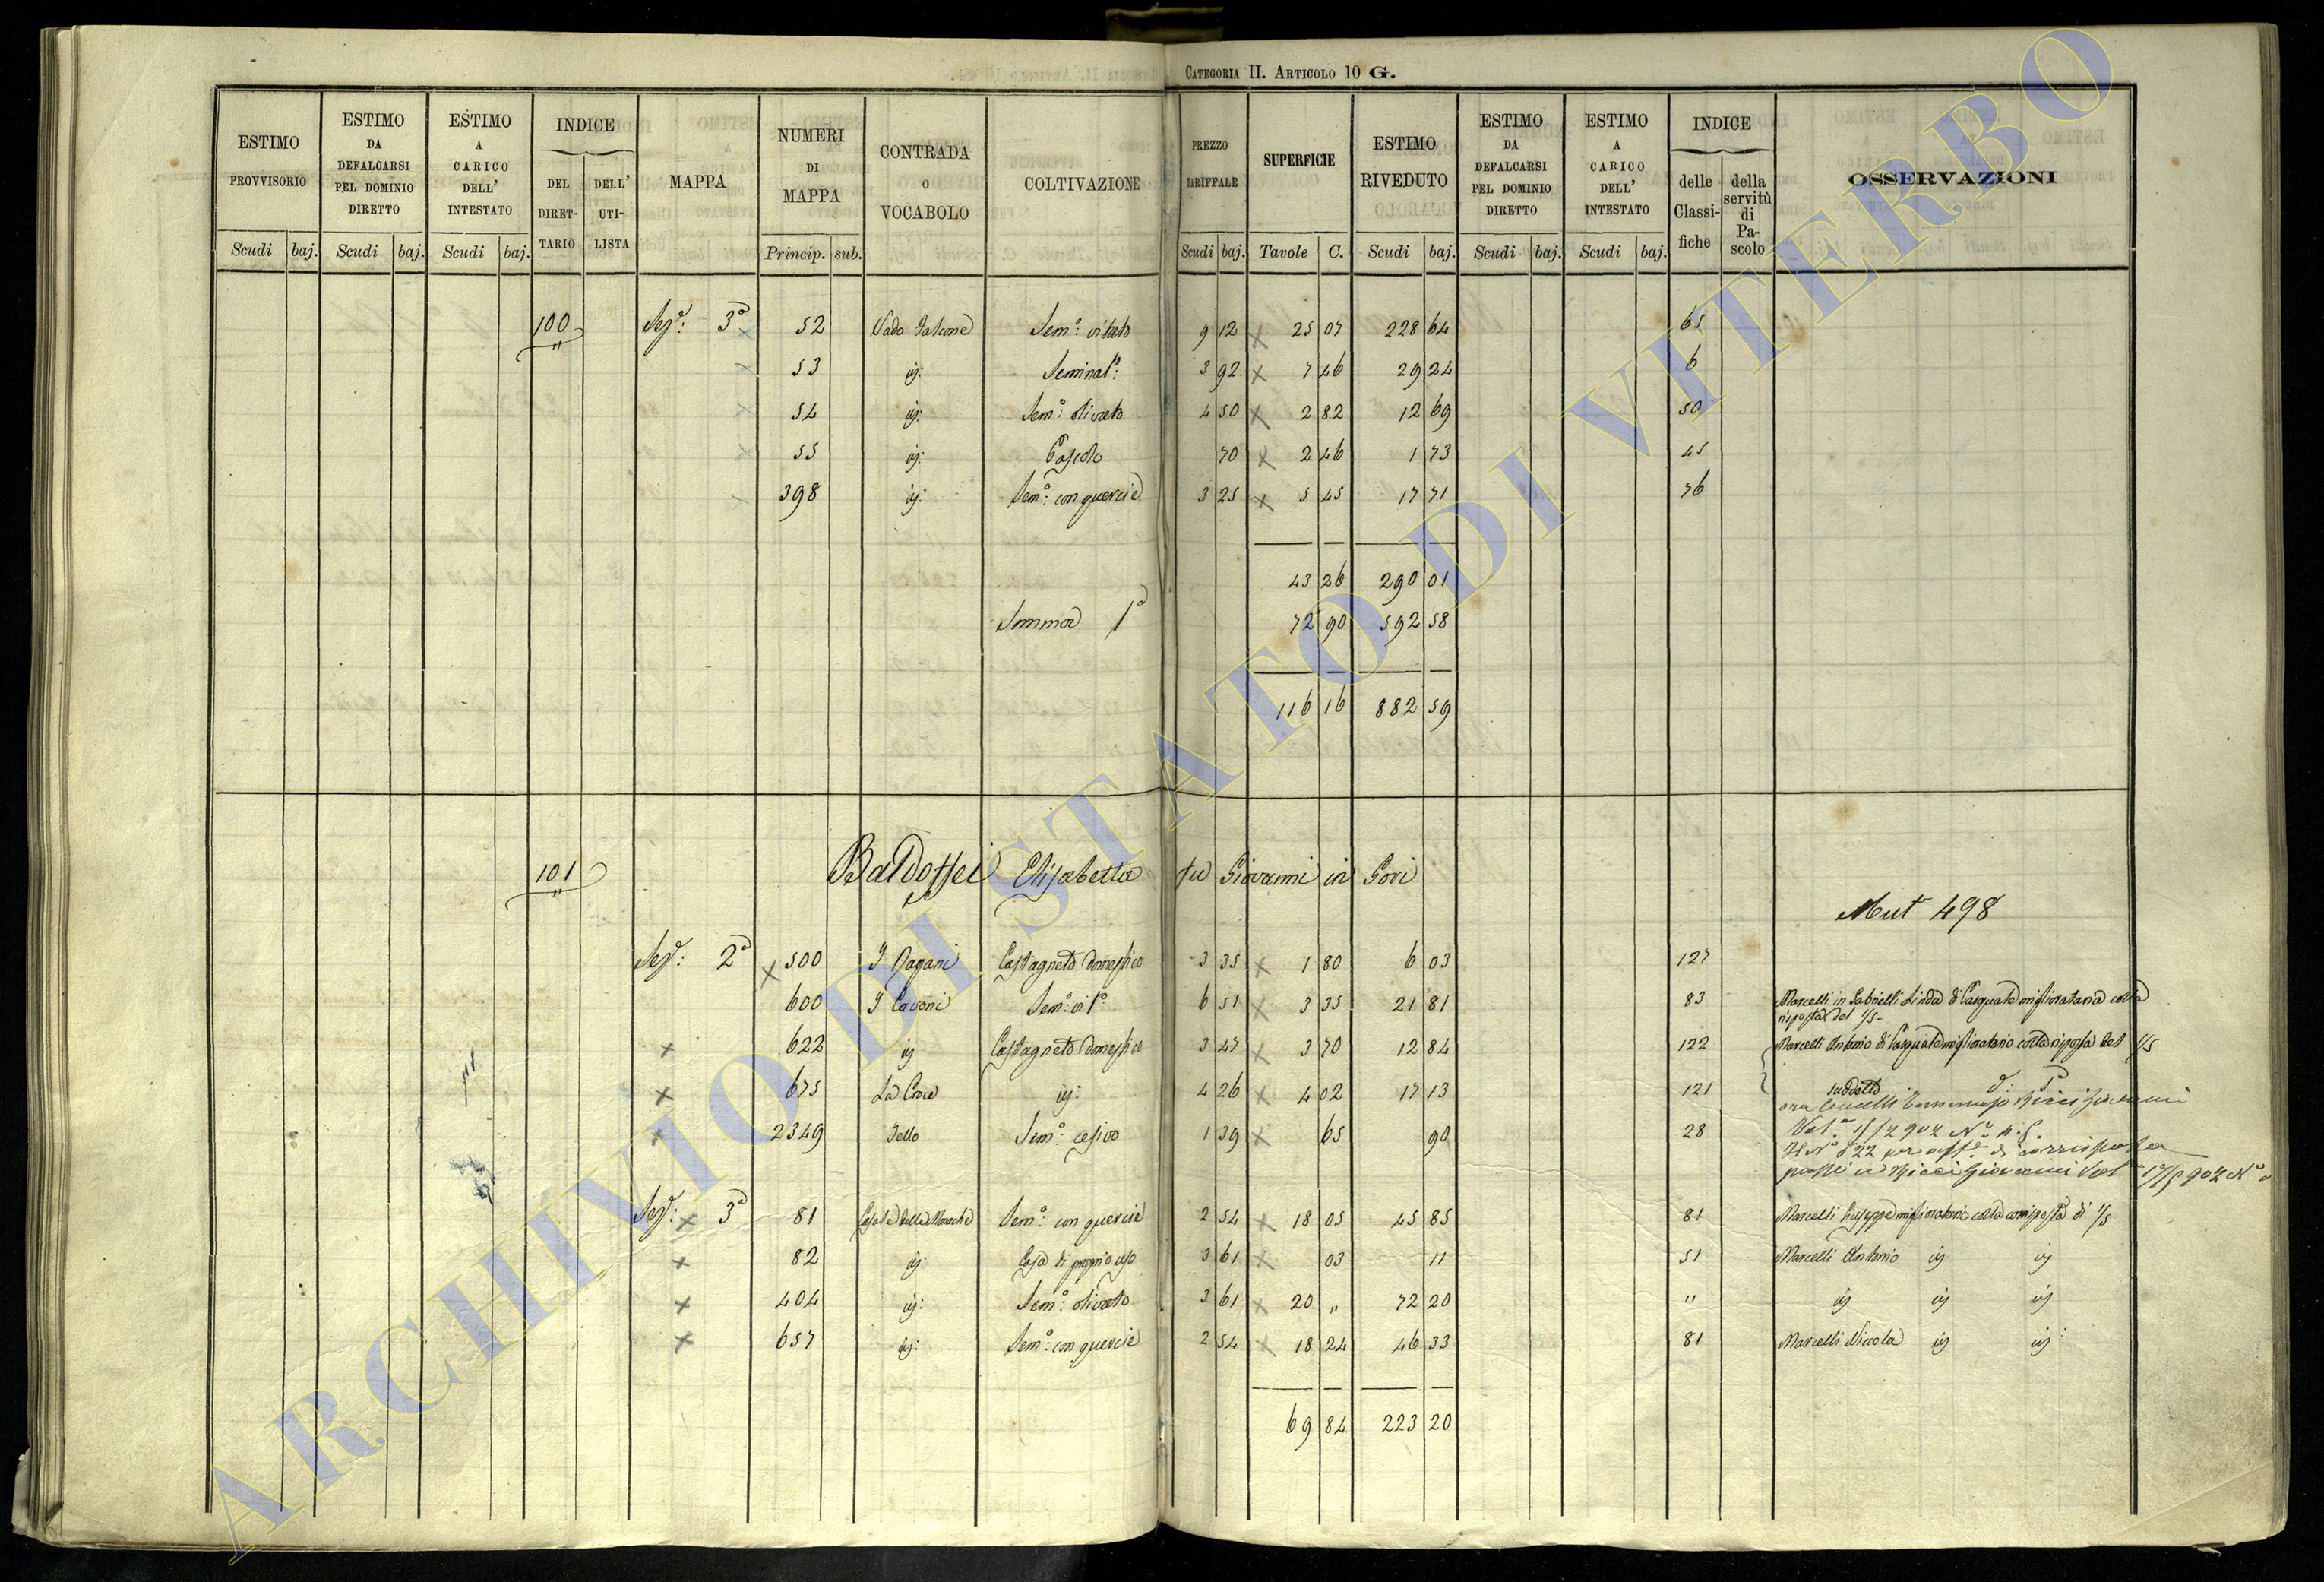 CATEGORIA II. ARTICOLO 10 G.
ESTIMO PROVVISORIO Scudi baj.
ESTIMO DA DEFALCARSI PEL DOMINIO DIRETTO Scudi baj.
ESTIMO A CARICO DELL' INTESTATO Scudi baj.
INDICE DEL DIRETTARIO DELL' UTILISTA
MAPPA
NUMERI DI MAPPA Princip. sub.
CONTRADA O VOCABOLO
COLTIVAZIONE
PREZZO TARIFFALE Scudi baj.
SUPERFICIE Tavole C.
ESTIMO RIVEDUTO Scudi baj.
ESTIMO DA DEFALCARSI PEL DOMINIO DIRETTO Scudi baj.
ESTIMO A CARICO DELL' INTESTATO Scudi baj.
INDICE delle Classifiche della servitù di Pascolo
OSSERVAZIONI
100 Sez.e: 3a 52 Vado Falcone Sem.o: vitato 9 12 25 07 228 64 65
53 ij: Seminat.o: 3 92 7 46 29 24 6
54 ij: Sem.o: olivato 4 50 2 82 12 69 50
55 ij: Pascolo 70 2 46 1 73 45
398 ij: Sem.o: con quercie 3 25 5 45 17 71 76
43 26 290 01
Somma 1a 72 90 592 58
116 16 882 59
101 Baldassei Elisabetta fu Giovanni in Gori
Mut 498
Sez.e: 2a 500 I Pagani Castagneto domestico 3 35 1 80 6 03 127
600 I Cavoni Sem.o: vit.o 6 51 3 35 21 81 83 Marcelli in Gabrielli Linda di Pasquale migliorataria colla
risposta del 1/5-
622 ij Castagneto domestico 3 47 3 70 12 84 122 Marcelli Antonio di Pasquale miglioratario colla risposta del 1/5
675 La Croce ij: 4 26 4 02 17 13 121 suddetto
ora Tommaso Ricci Giovanni
2349 Sem.o: cesivo 1 39 65 90 28
Il N.o 622 per aff.e di corrisposta
passi a Ricci Giovanni
Sez.e: 3a 81 Casale delle Monache Sem.o: con quercie 2 54 18 05 45 85 81 Marcelli Giuseppe miglioratario colla corrisposta di 1/5
82 ij: Casa di proprio uso 3 61 03 11 51 Marcelli Antonio ij ij
404 ij: Sem.o: olivato 3 61 20 " 72 20 " ij ij ij
657 ij: Sem.o: con quercie 2 54 18 24 46 33 81 Marcelli Niccola ij ij
69 84 223 20
ARCHIVIO DI STATO DI VITERBO